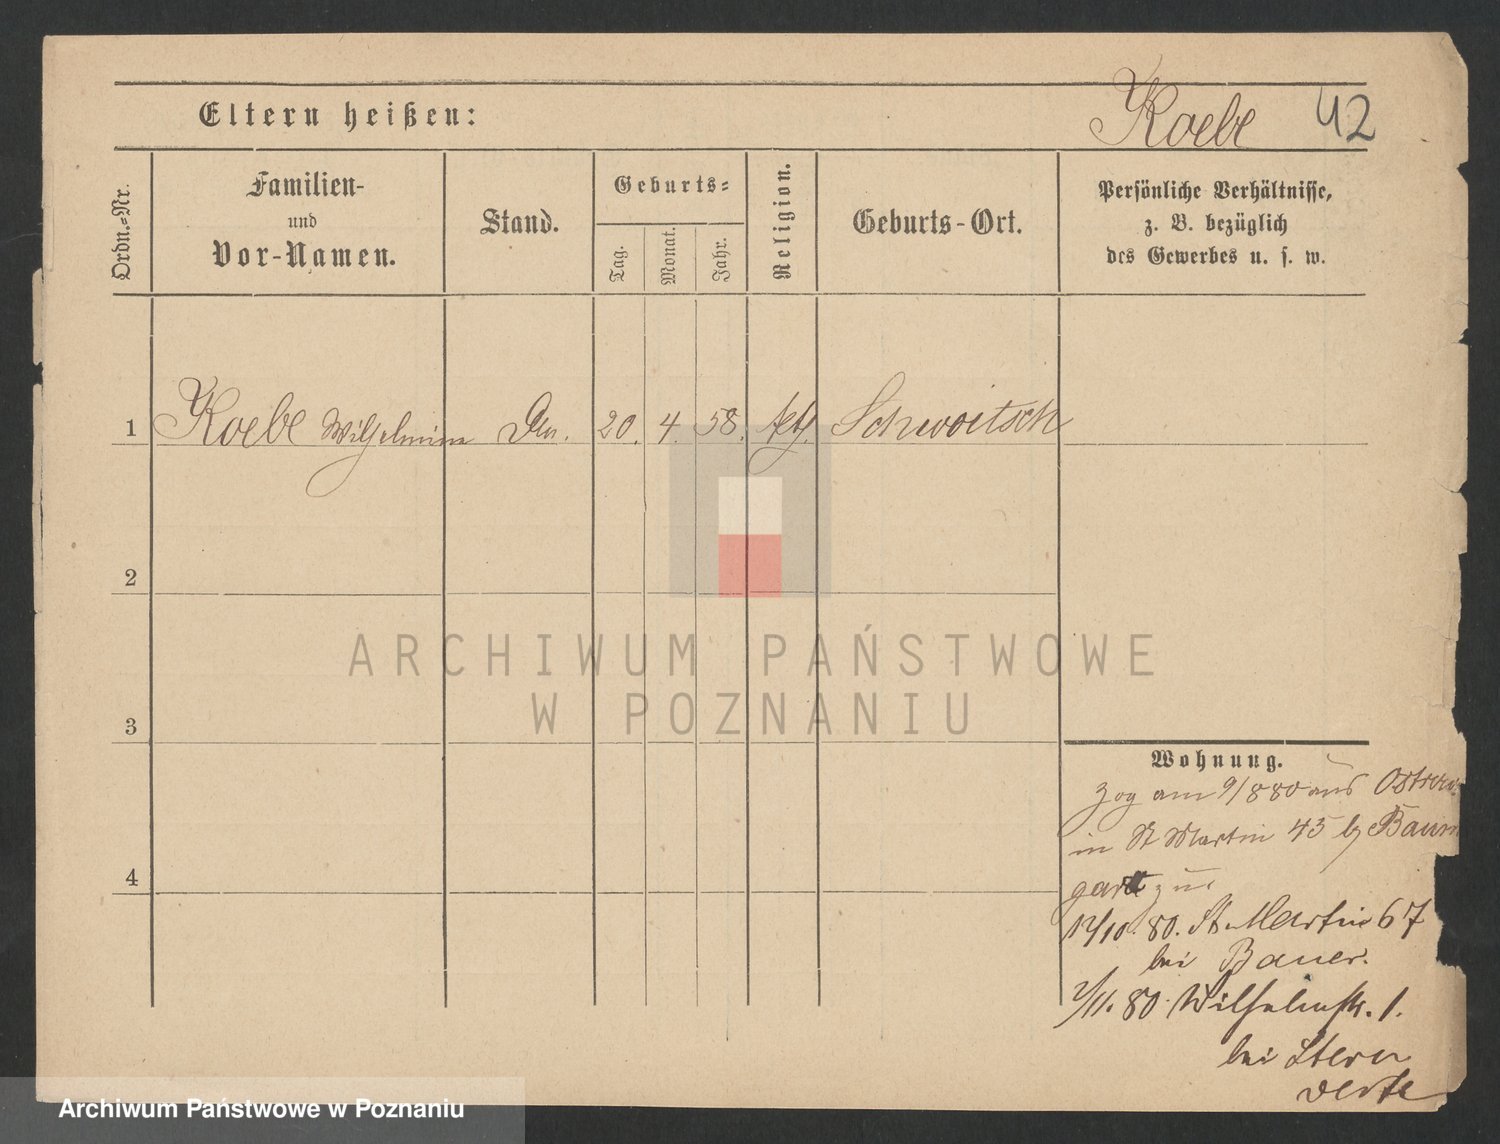 Koebe 42
Eltern heißen:
Ordn.-Nr.
Familien-
und
Vor-Namen.
Stand.
Geburts-
Tag.
Monat.
Jahr.
Religion.
Geburts-Ort.
Persönliche Verhältnisse,
z. B. bezüglich
des Gewerbes u. s. w.
1 Koebe Wilhelmine 20. 4. 58. kth. Schwoitsch
2
3
4
Wohnung.
zog am 9/8 80 aus
in St Martin 45 Baum
gart
12/10. 80. St. Martin 67
bei Bauer.
2/11. 80. Wilhelmstr. 1.
bei Stern
verte
ARCHIWUM PAŃSTWOWE
W POZNANIU
Archiwum Państwowe w Poznaniu